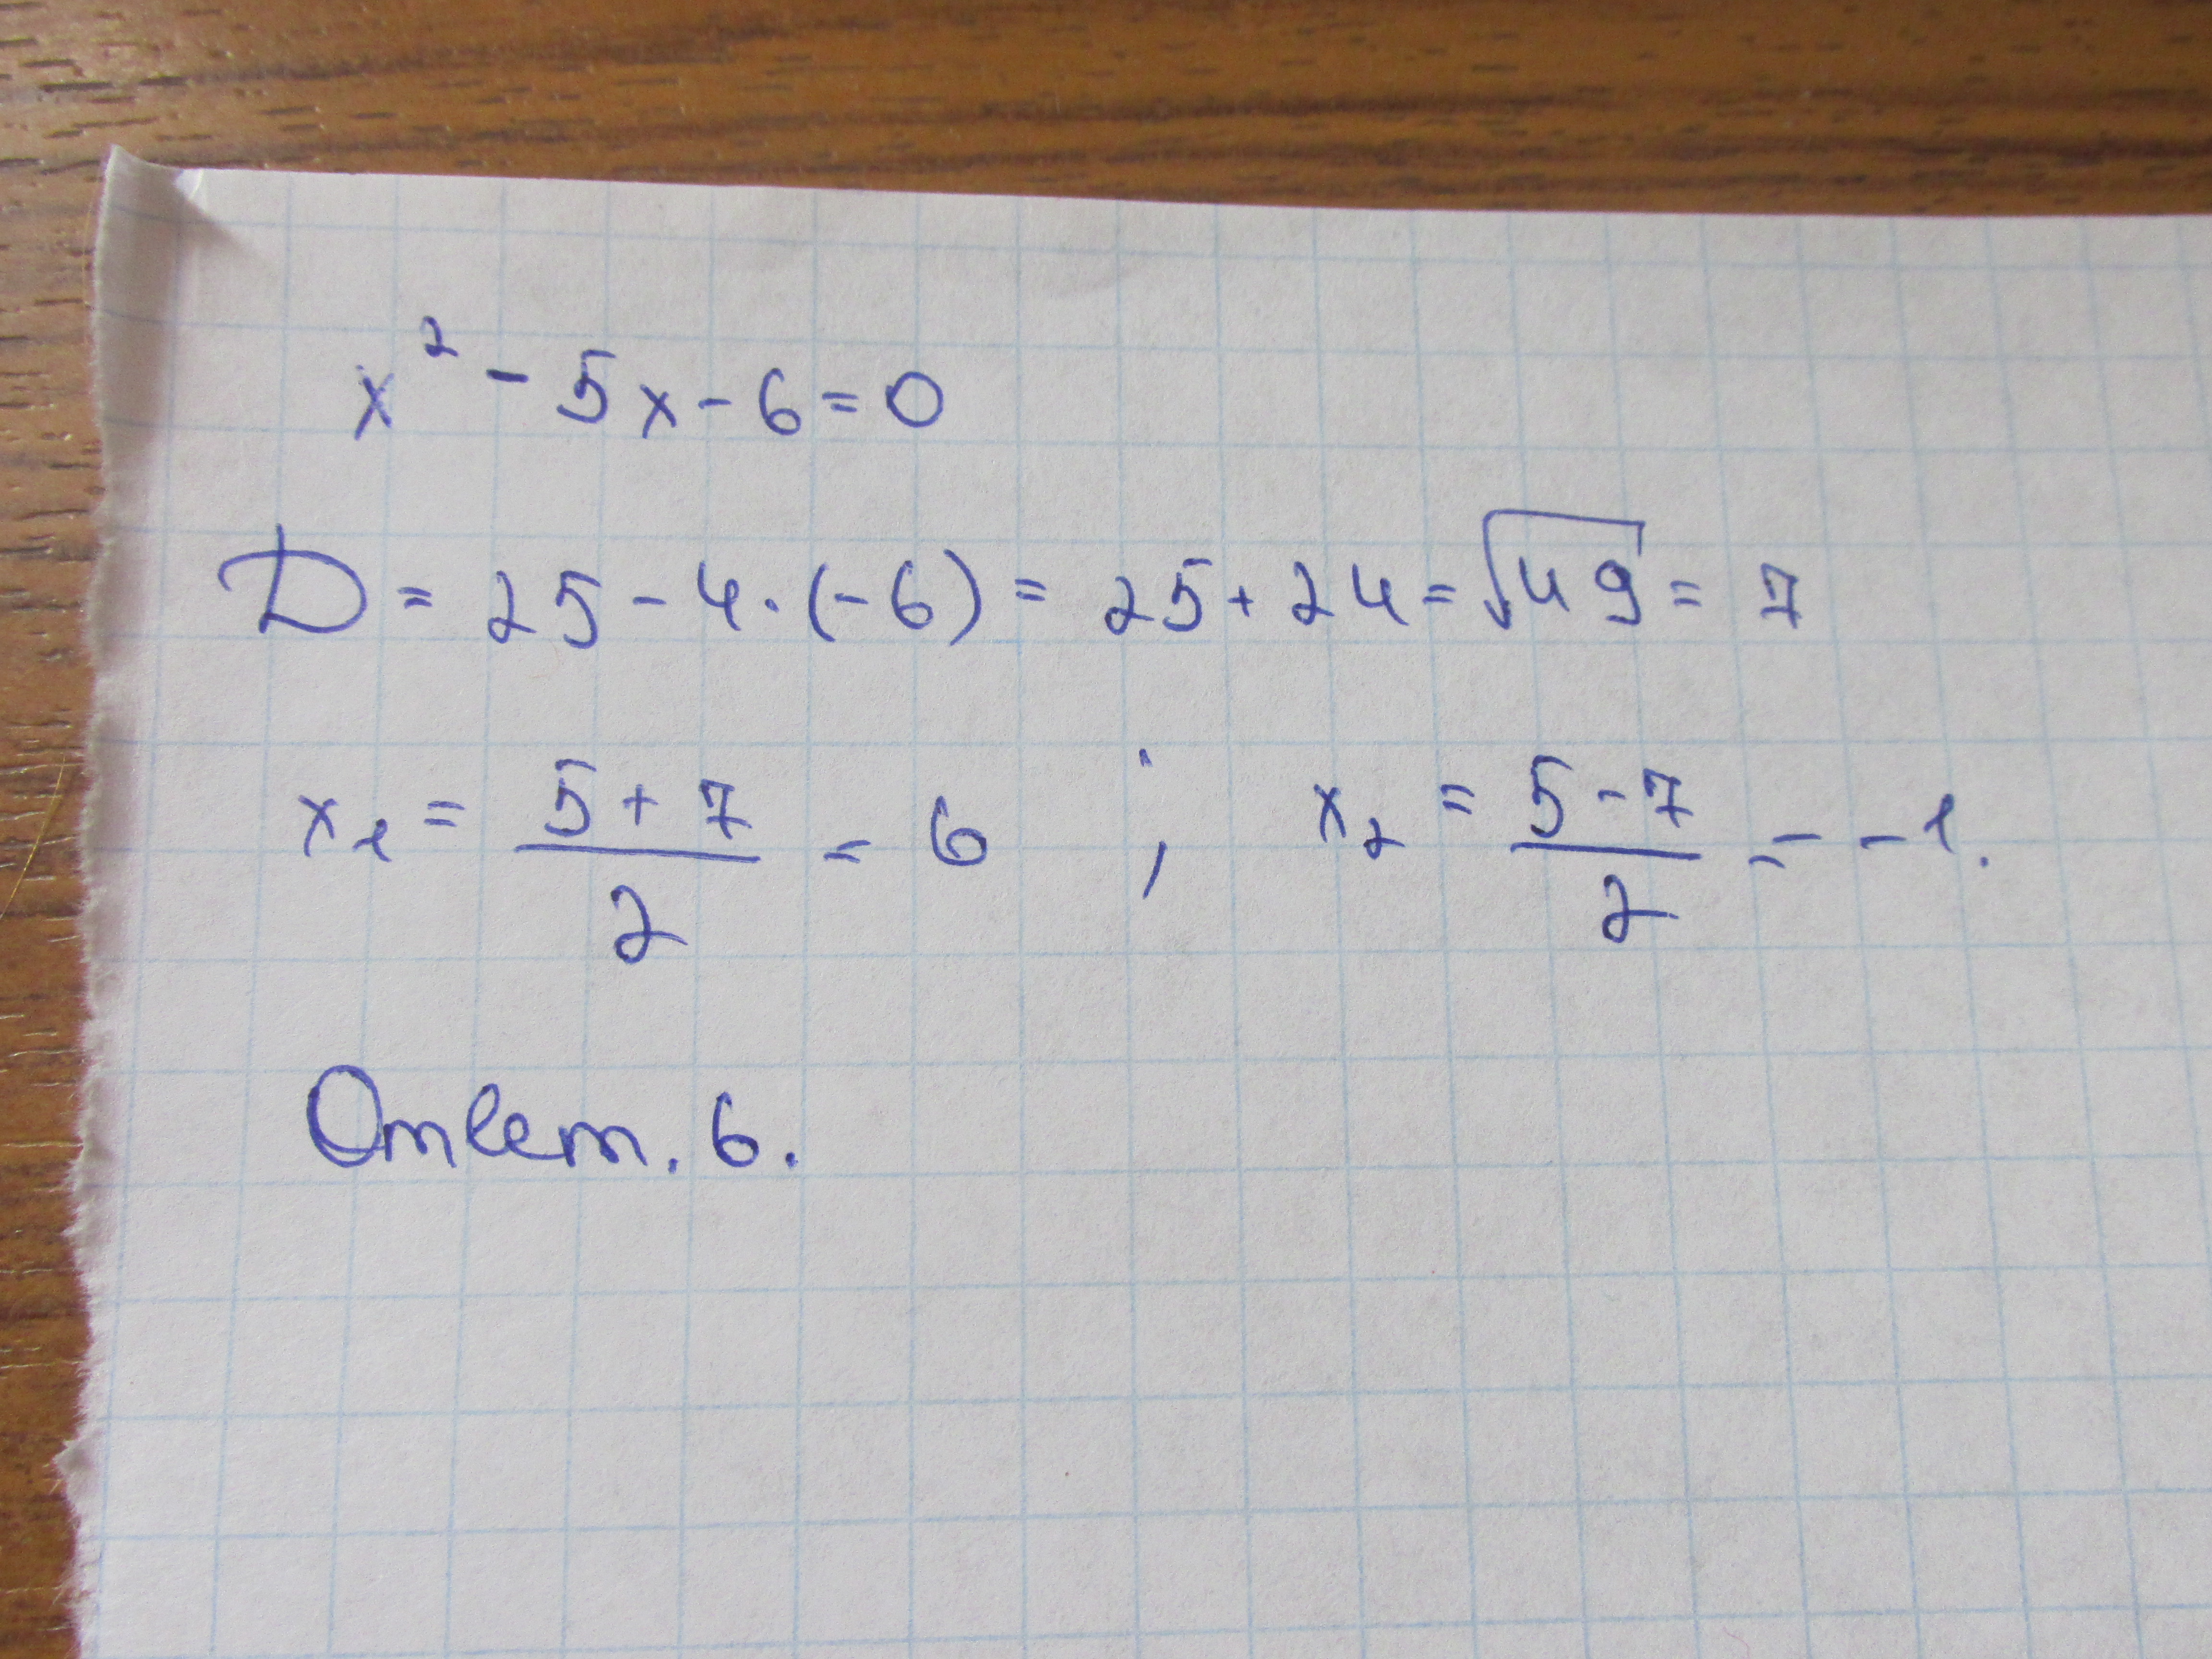 x² - 5x - 6 = 0
D = 25 - 4 · (-6) = 25 + 24 = √49 = 7
x₁ = (5 + 7)/2 = 6 ; x₂ = (5 - 7)/2 = -1.
Ответ. 6.